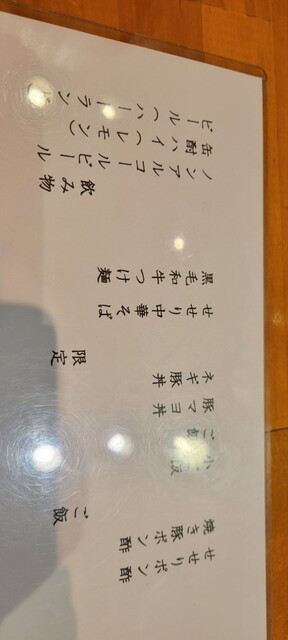 せせりポン酢
焼き豚ポン酢
ご飯
小ご飯
ご飯
豚マヨ丼
ネギ豚丼
限定
せせり中華そば
黒毛和牛つけ麺
飲み物
ノンアルコールビール
缶酎ハイ（レモン）
ビール（ハートラン